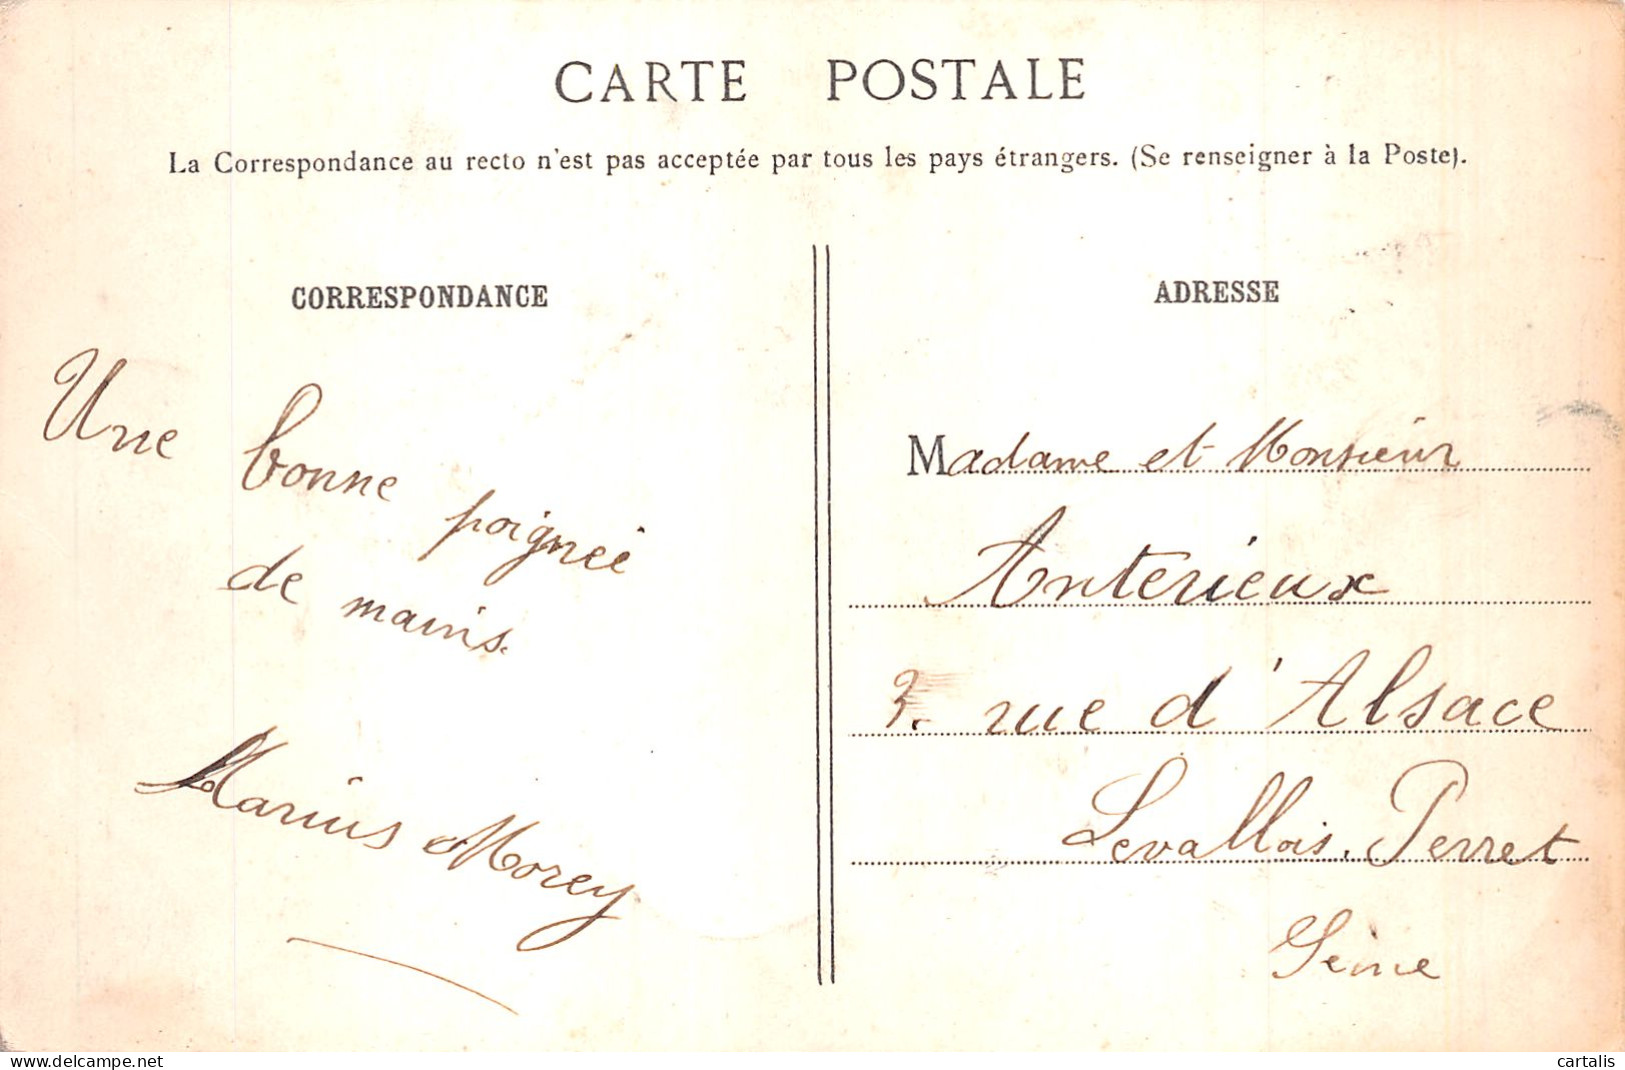 CARTE POSTALE
La Correspondance au recto n'est pas acceptée par tous les pays étrangers. (Se renseigner à la Poste).
CORRESPONDANCE
Une bonne poignée
de mains.
Marius Morey
ADRESSE
Madame et Monsieur
Anterieux
3. rue d'Alsace
Levallois. Perret
Seine
www.delcampe.net
cartalis